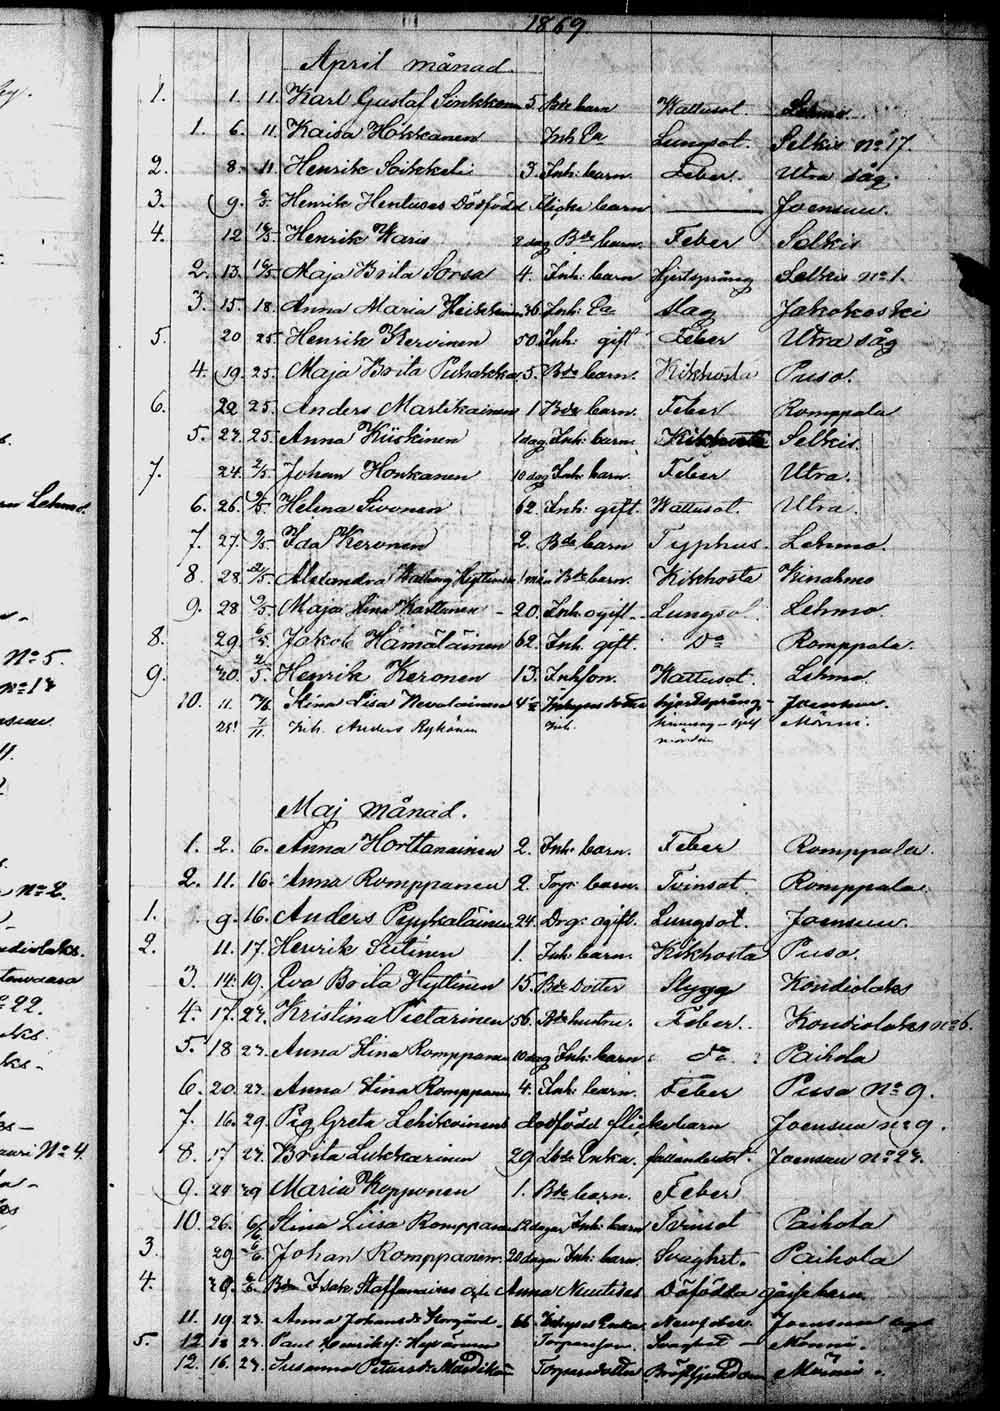 1869
April månad
1. 1. 11. Karl Gustaf Sinkkonen 5. Bde barn Wattusot. Lehmo.
1. 6. 11. Kaisa Hökkanen Inh. Ea Lungsot. Selkis No 17.
2. 8. 11 Henrik Soikkeli 3. Inh: barn. Feber. Utra såg.
3. 9. Henrik Hentuses Dödfödd flicke barn Joensuu.
4. 12 Henrik Waris 2 dag Bde barn. Feber Selkis
2. 13. Maja Brita Sorsa 4. Inh: barn Hjertsprång Selkis No 1.
3. 15. 18. Anna Maria Heikkinen 36. Inh: Ea Slag Jakokoski
5. 20 25. Henrik Kervinen 50. Inh: gift Feber Utra såg
4. 19. 25. Maja Brita Puhakka 5. Bde barn. Kikhosta Puso.
6. 22 25. Anders Martikainen 1 Bde barn. Feber Romppala
5. 23. 25. Anna Kiiskinen 1 dag Inh: barn. Kikhosta Selkis.
7. 24. 2/5. Johan Honkanen 10 dag Inh: barn. Feber Utra.
6. 26. 2/5. Helena Sivonen 62. Inh: gift. Wattusot. Utra.
7. 27. 2/5. Ida Keronen 2. Bde barn Typhus. Lehmo.
8. 28. Alexandra Hyttinen 1 mån Bde barn. Kikhosta Kinahmo
9. 28 2/5. Maja Stina Karttunen 20. Inh: ogift. Lungsot. Lehmo
8. 29. 6/5. Jakob Hämäläinen 62. Inh. gift. Do Romppala.
9. 30. 2/5. Henrik Keronen 13. Inh son. Wattusot. Lehmo.
10. 11. Stina Lisa Nevalainen hjertsprång Joensuu.
25. 7/11. Inh. Anders Rykönen Inh. sjelfmördare
Maj månad.
1. 2. 6. Anna Horttanainen 2. Inh: barn. Feber Romppala.
2. 11. 16. Anna Romppanen 2. Torp: barn. Tvinsot. Romppala.
1. 9. 16. Anders Pyykoläinen 24. Drg: ogift. Lungsot. Joensuu.
2. 11. 17. Henrik Sutinen 1. Inh: barn. Kikhosta Puso.
3. 14. 19. Eva Brita Hyttinen 15. Bde Dotter Stygg Kondiolaks
4. 17. 23. Kristina Pietarinen 56. Bde hustru. Feber. Kondiolaks No 6.
5. 18 23. Anna Stina Romppanen 10 dag Inh: barn do Paihola
6. 20. 23. Anna Stina Romppanen 4. Inh: barn. Feber Puso No 9.
7. 16. 29. Pig Greta Lehikoinens dödfödd flickebarn Joensuu No 9.
8. 17 23. Brita Lukkarinen 29 Enka. fallandesot. Joensuu No 23.
9. 24 29 Maria Kopponen 1. Bde barn. Feber
10. 26. 6/6. Stina Liisa Romppanen 12 dagar Inh: barn Tvinsot Paihola
3. 29. 6/6. Johan Romppanen 20 dagar Inh: barn. Svaghet. Paihola
4. 6/6. Bdn Isak Staffanaines o/c Anna Nuutises Döfödda gåsse barn
11. 19. 23. Anna Johansdr 66 Enka Joensuu
5. 12 23. Paul Henriks: Torpareson. Svaghet
12. 16. 23. Susanna Petersdr Torparedotter Bröstsjukdom